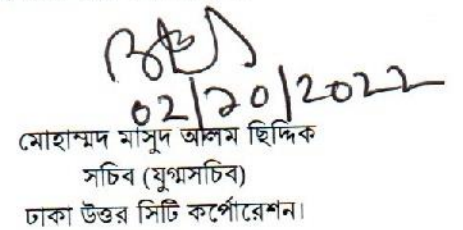 02/10/2022
মোহাম্মদ মাসুদ আলম ছিদ্দিক
সচিব (যুগ্মসচিব)
ঢাকা উত্তর সিটি কর্পোরেশন।